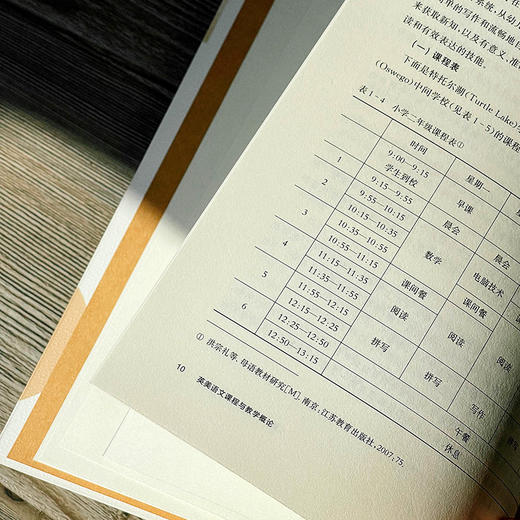 系统,从幼
单的写作和流畅地
来获取新知,以及有意义、准
读和有效表达的技能。
(一) 课程表
下面是特托尔湖(Turtle Lake)
(Oswego)中间学校(见表1-5)的课程
表1-4 小学二年级课程表①
时间 星期一
9:00—9:15 学生到校 早课
1 9:15—9:55 晨会 晨会
2 9:55—10:15 数学 电脑技术
10:15—10:35
3 10:35—10:55
10:55—11:15 课间餐 课间餐
4 11:15—11:35 阅读 阅读
11:35—11:55
5 11:55—12:15 拼写 阅读
12:15—12:25 拼写
6 12:25—12:50 写作
12:50—13:15 午餐
休息
① 洪宗礼等. 母语教材研究[M]. 南京:江苏教育出版社,2007:75.
10 英美语文课程与教学概论